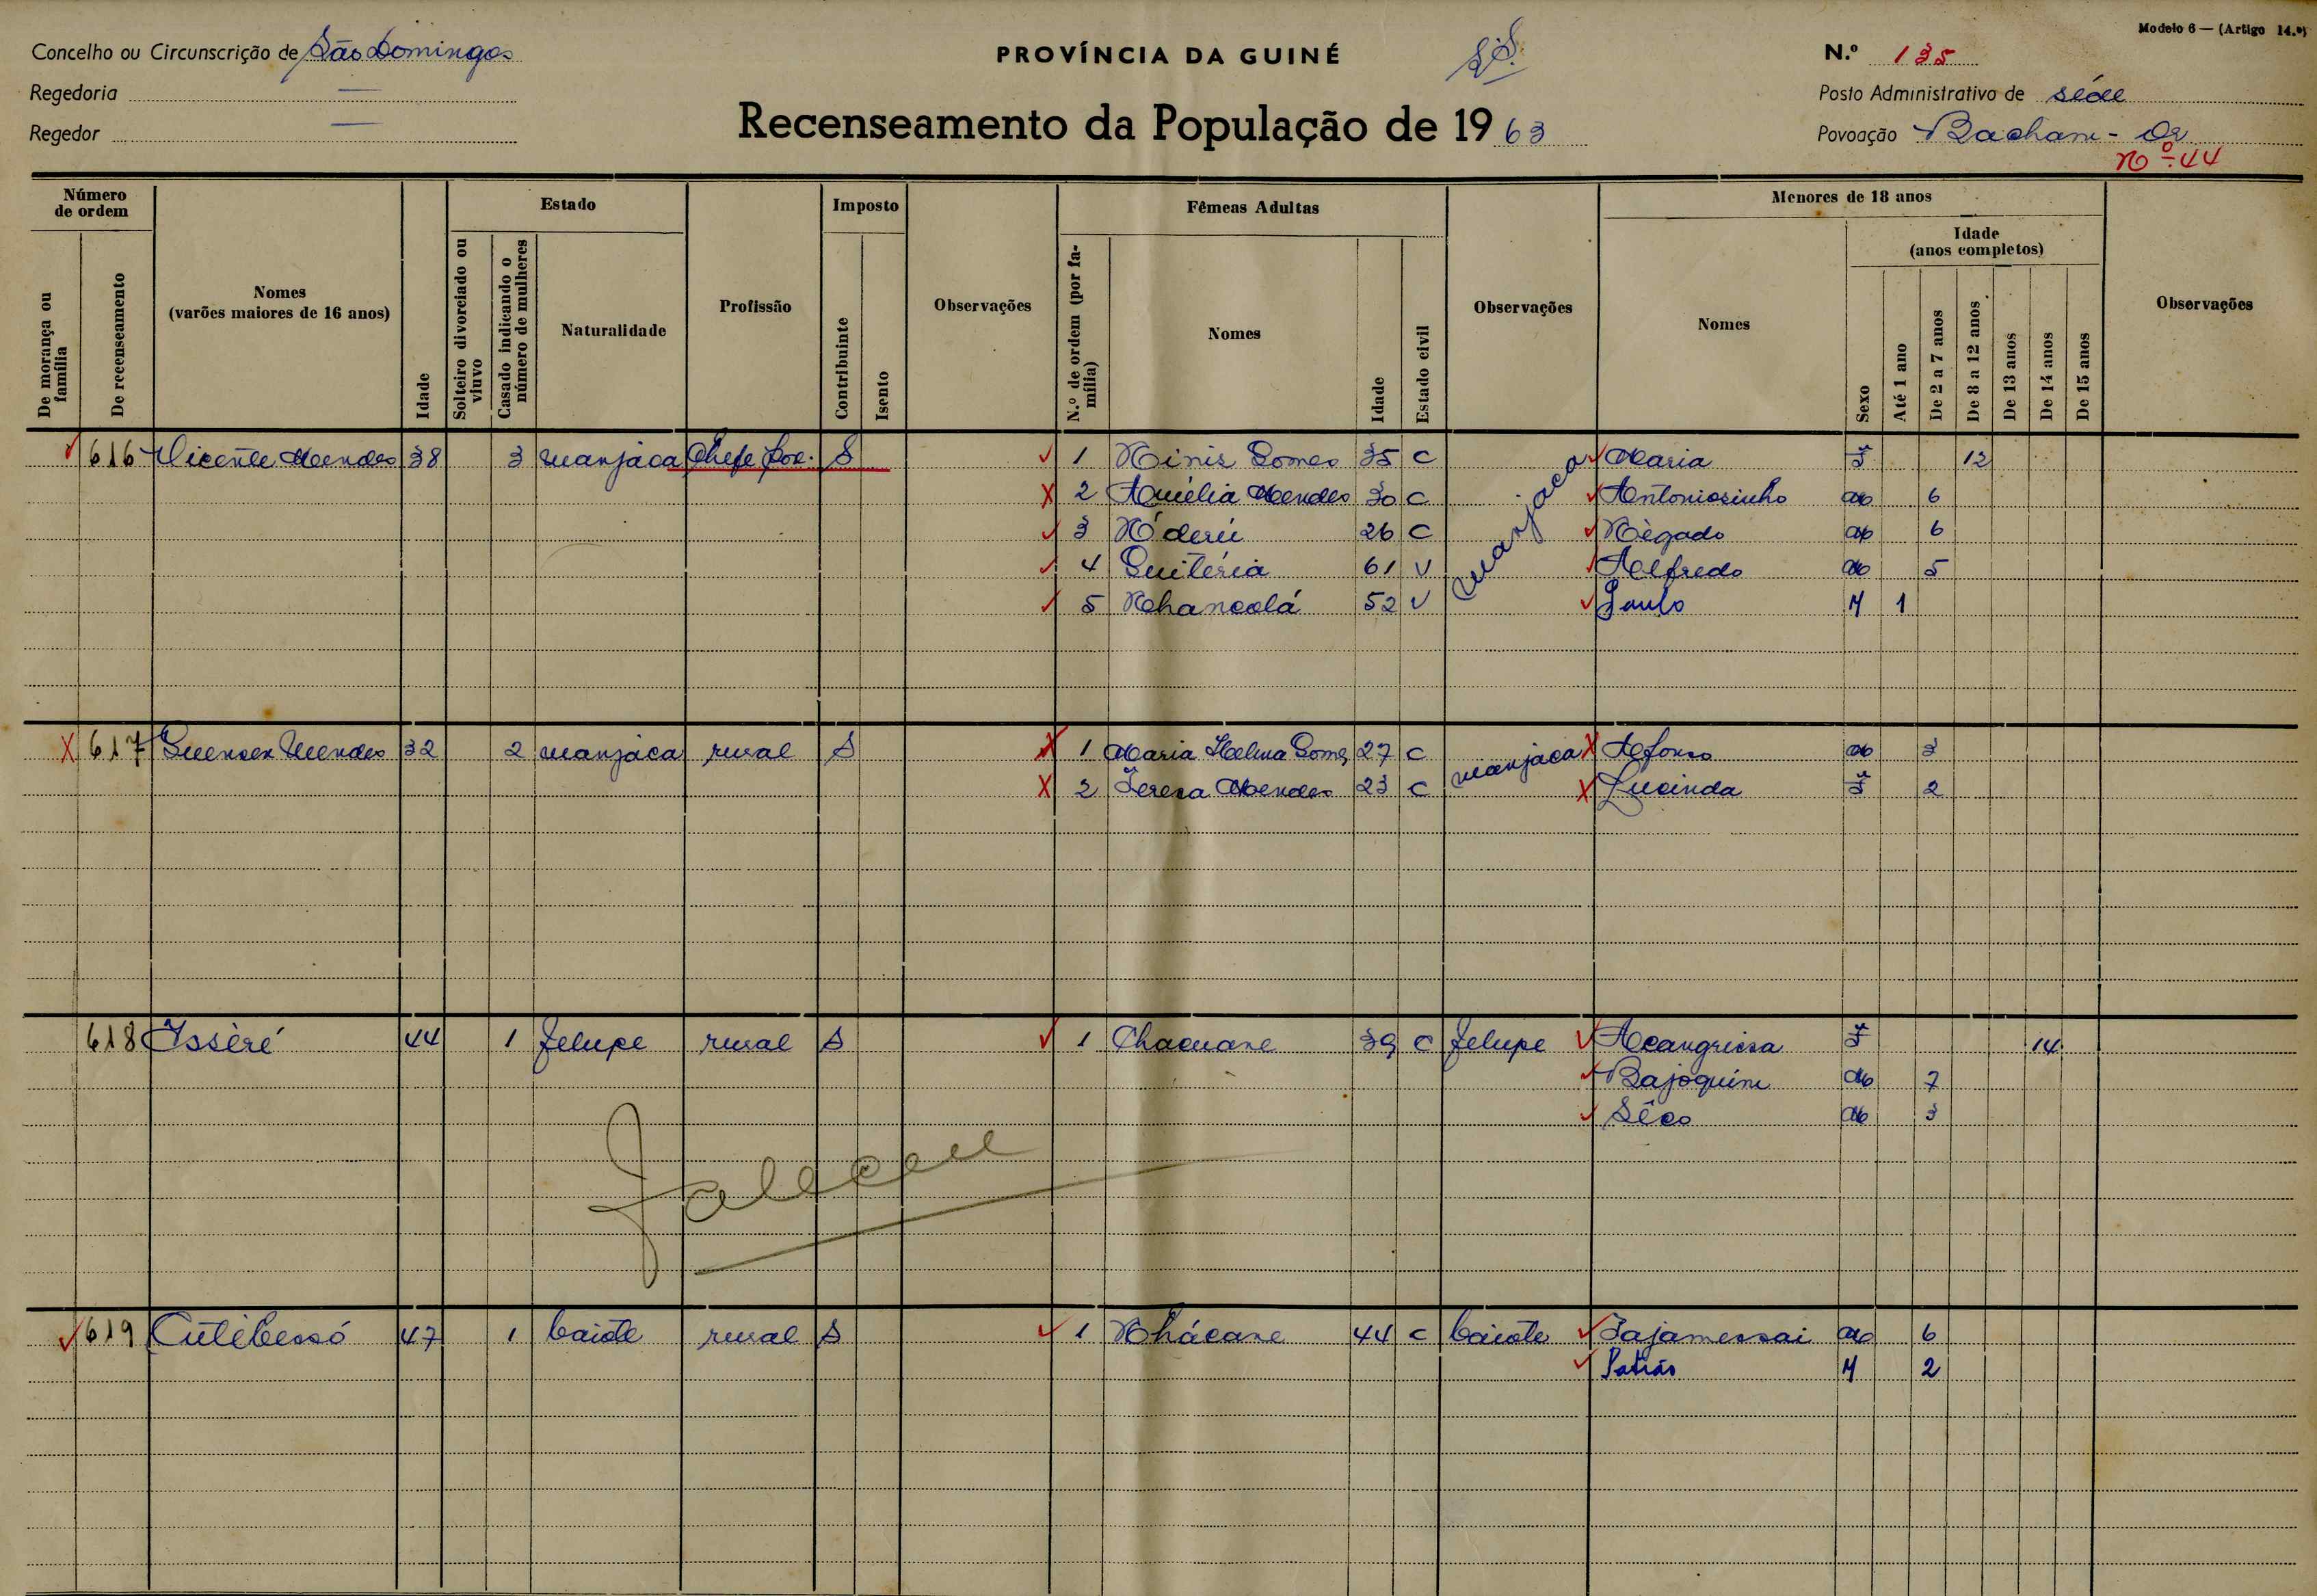 Modelo 6 — (Artigo 14.º)
Concelho ou Circunscrição de São Domingos
PROVÍNCIA DA GUINÉ
N.º 135
Regedoria —
Posto Administrativo de séde
Regedor —
Recenseamento da População de 1963
Povoação
Nº 44
Número de ordem
De morança ou família
De recenseamento
Nomes (varões maiores de 16 anos)
Idade
Estado
Solteiro divorciado ou viuvo
Casado indicando o número de mulheres
Naturalidade
Profissão
Imposto
Contribuinte
Isento
Observações
Fêmeas Adultas
N.º de ordem (por família)
Nomes
Idade
Estado civil
Observações
Menores de 18 anos
Nomes
Sexo
Idade (anos completos)
Até 1 ano
De 2 a 7 anos
De 8 a 12 anos
De 13 anos
De 14 anos
De 15 anos
Observações
616 Vicente Mendes 38 3 manjaca Chefe S 1 Gomes 35 C manjaca Maria F 12
2 Amélia Mendes 30 C Antoniozinho M 6
3 26 C M 6
4 Quitéria 61 V Alfredo M 5
5 52 V Paulo M 1
617 Mendes 32 2 manjaca rural S 1 Maria Gomes 27 C manjaca Afonso M 3
2 Teresa Mendes 23 C Lucinda F 2
618 Issèré 44 1 felupe rural S 1 39 C felupe F 14
Bajoquim M 7
Sêco M 3
Faleceu
619 47 1 baiote rural S 1 Nhácane 44 C baiote M 6
M 2